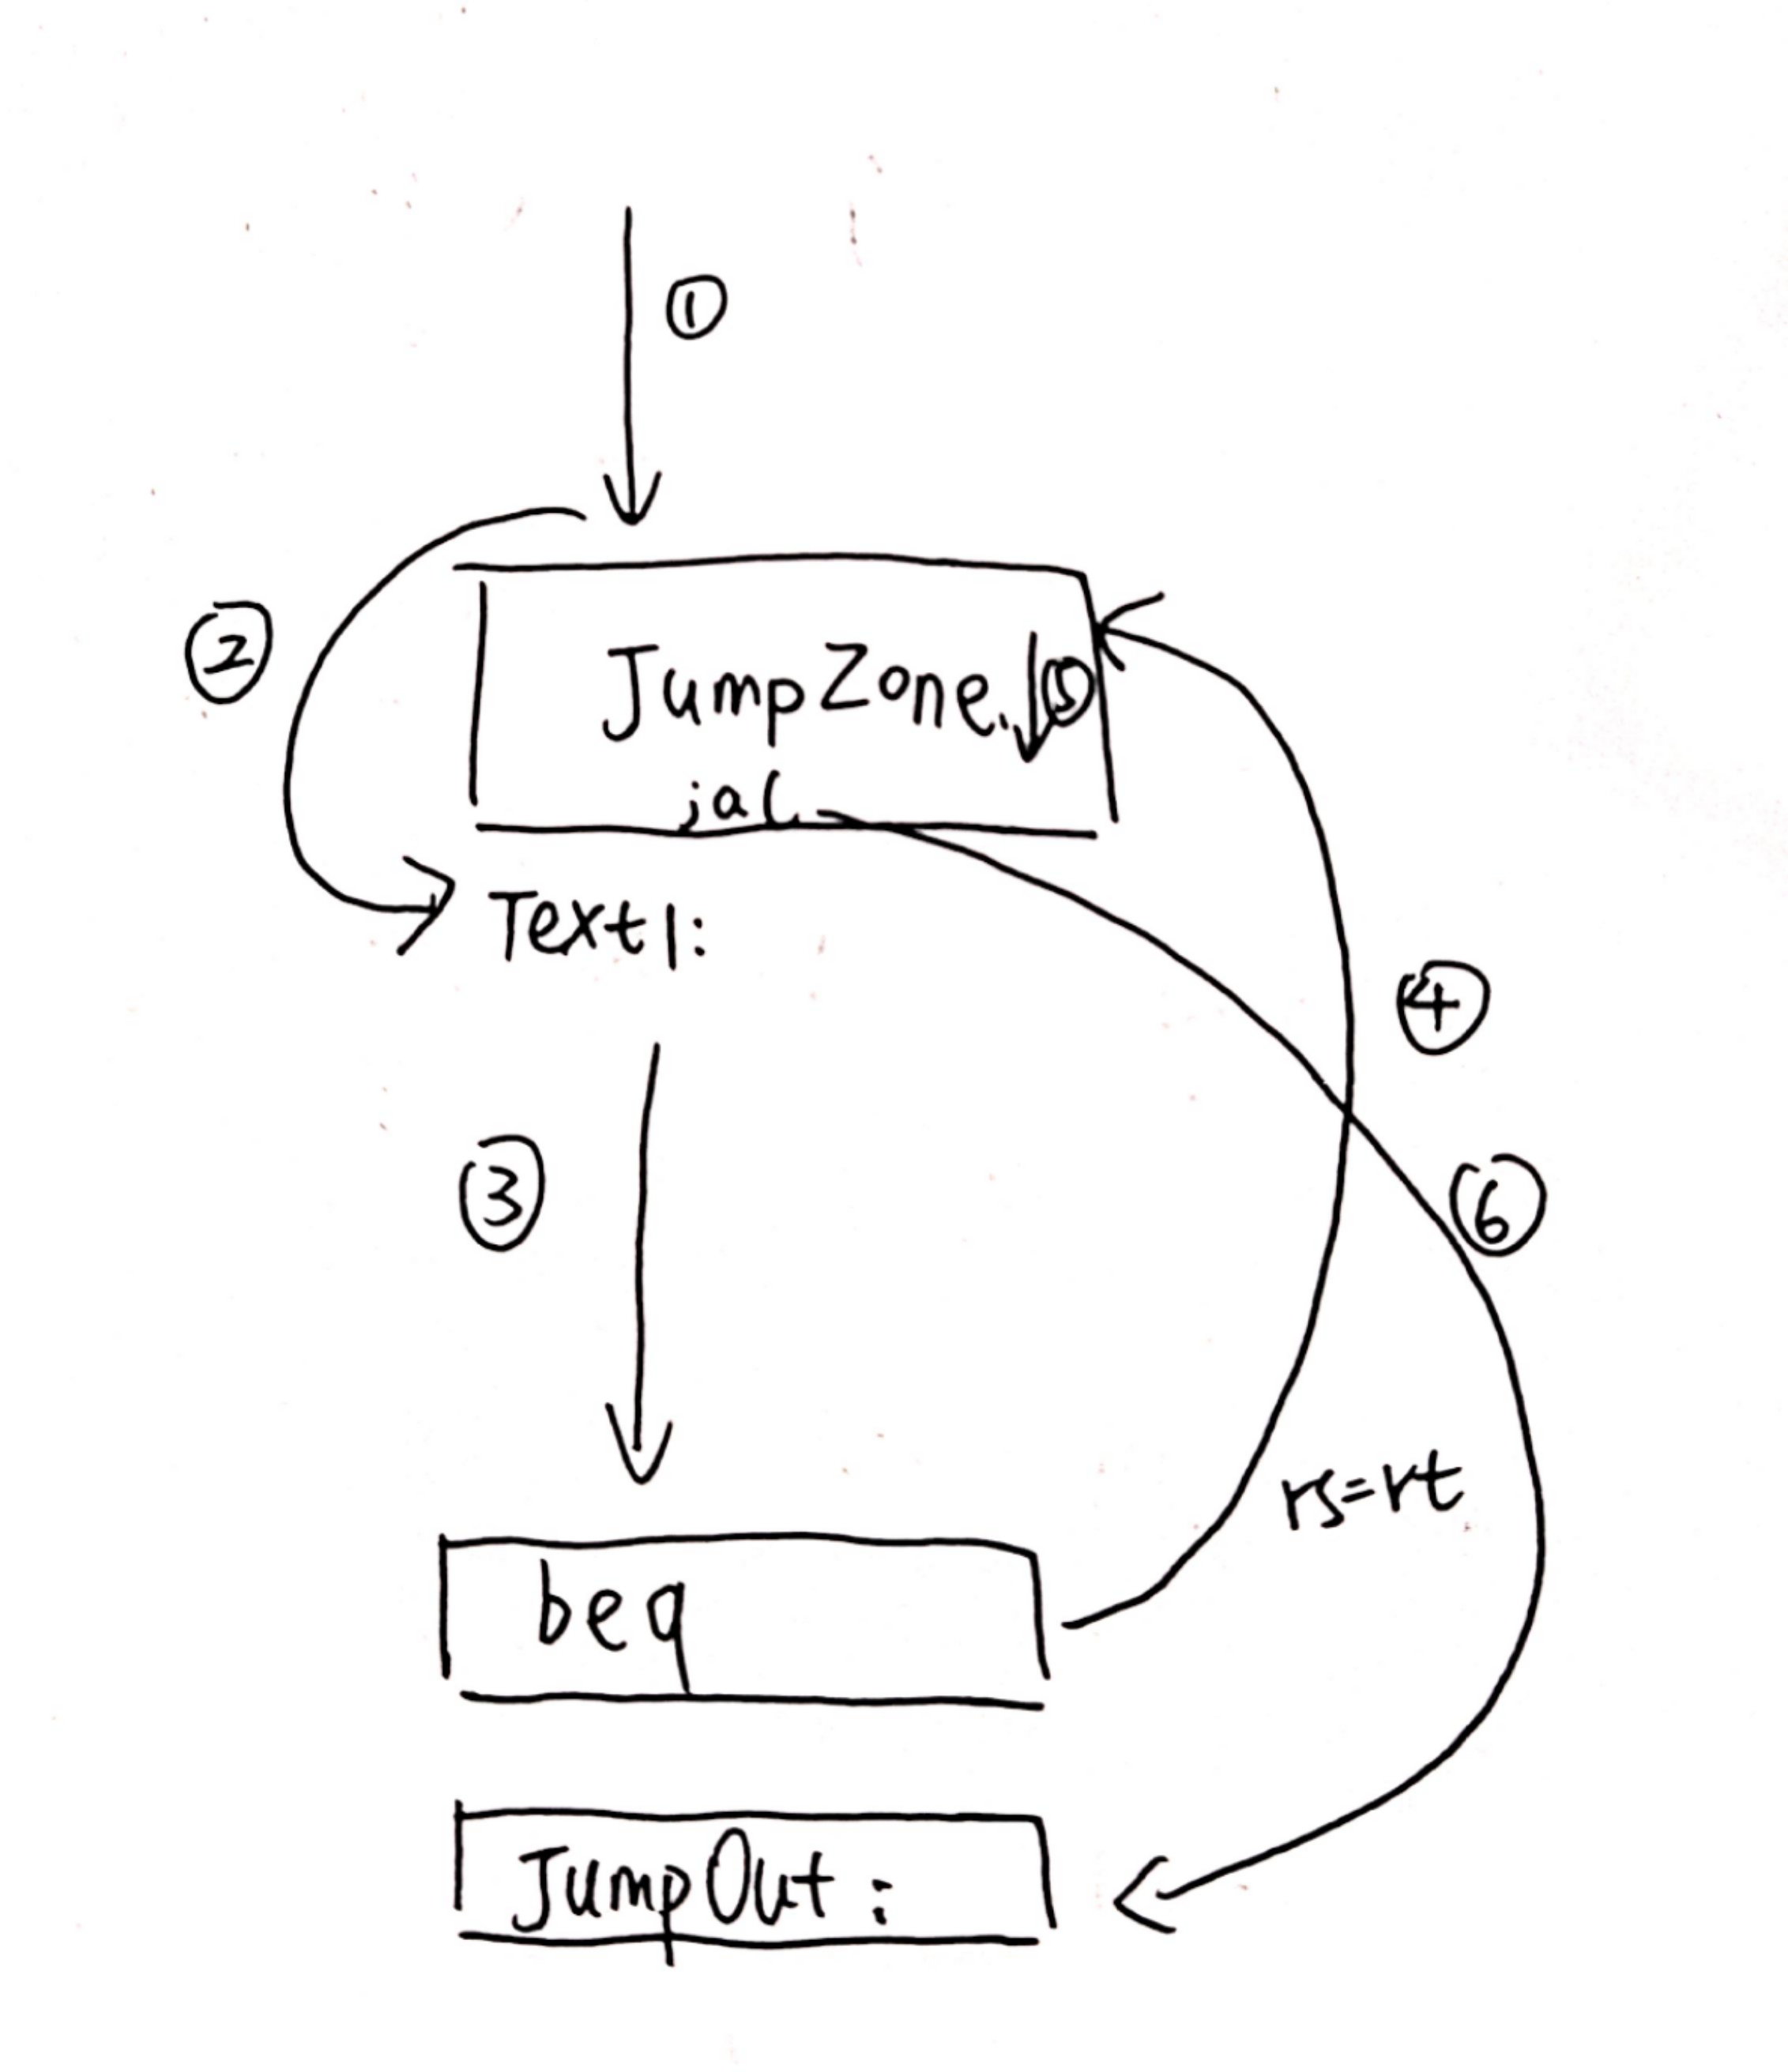 ①
②
JumpZone. ⑤
jal
Text1:
④
③
⑥
rs=rt
beq
JumpOut: